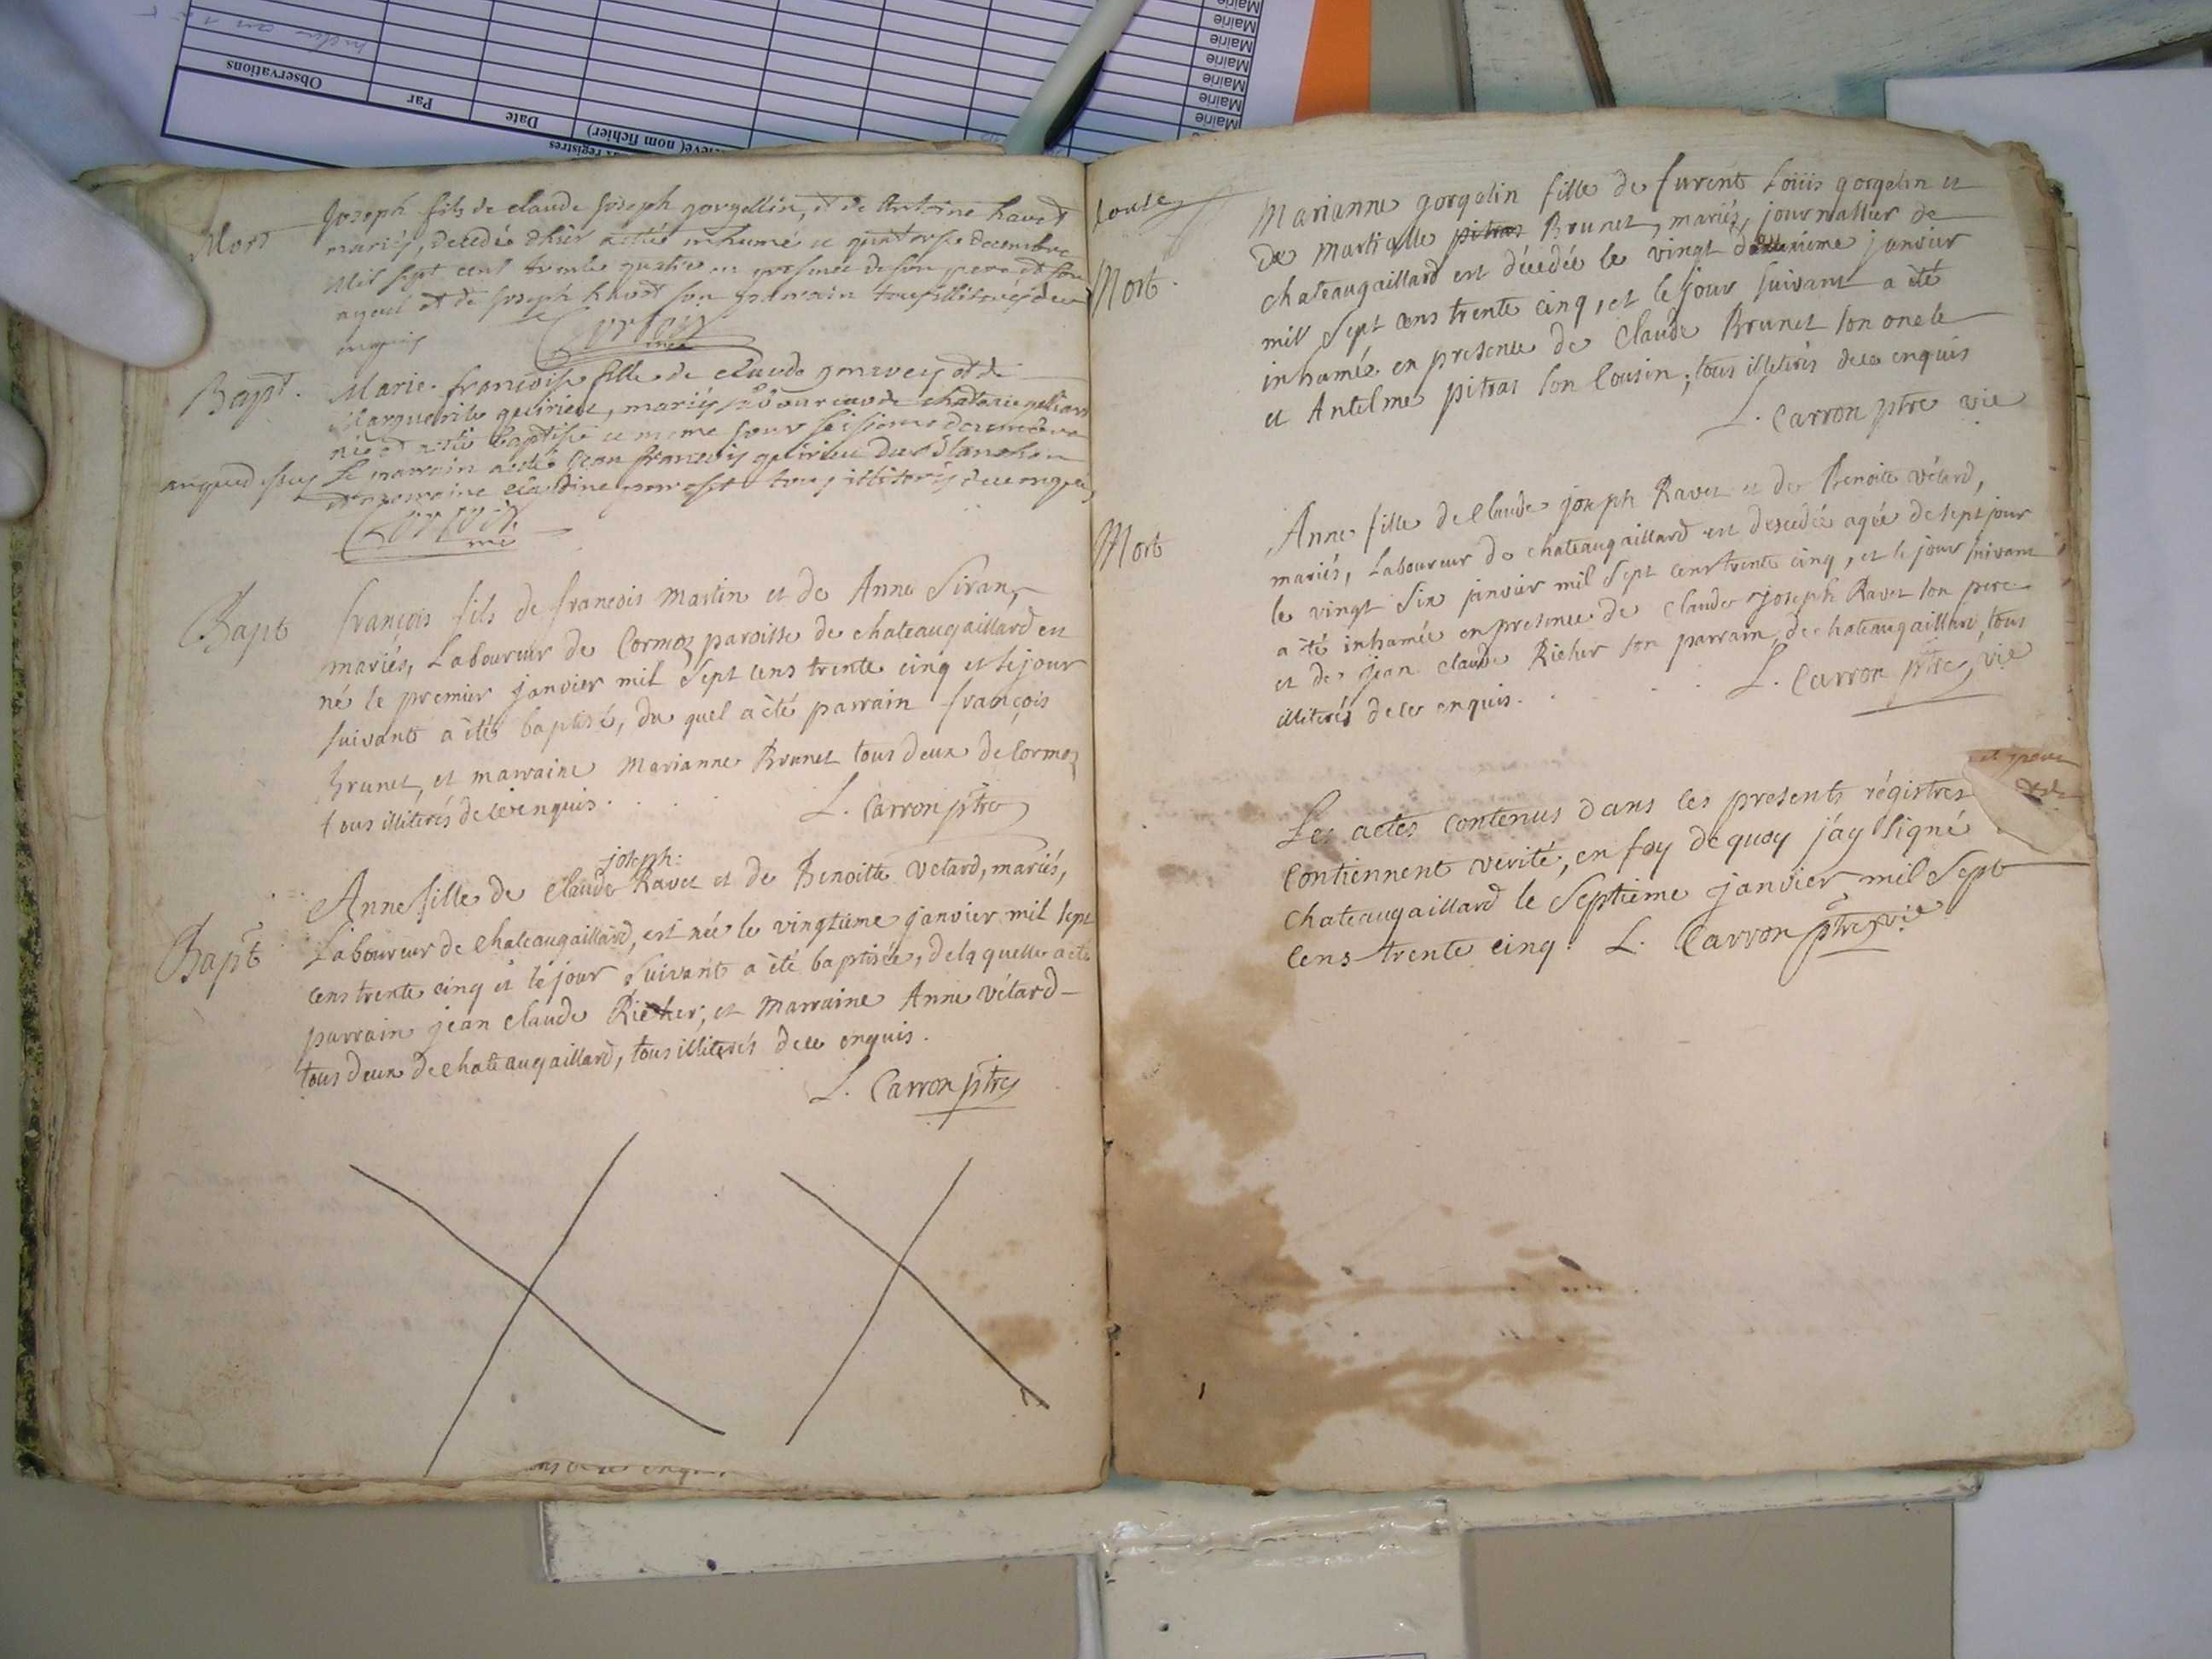 Observations
Par
Date
(nom fichier)
registres
Mairie
Mairie
Mairie
Mairie
Mairie
Mairie
Mairie
Mort
Joseph fils de claude joseph gorgellin, et de Antoine
mariés, decedé dhier a été inhumé ce quatorse decembre
mil sept cent trente quatre en presence de son pere et son
ayeul et de joseph son parrain tous illiterés de ce
enquis
Bapt.
Marie francoise fille de claude et de
Marguerite mariés laboureur de chateaugalliard
née et a été baptisé ce meme jour seisieme decembre
Le parrain a été jean francois
et maraine claudine tous illiterés de ce enquis
Bapt
françois fils de françois Martin et de Anne Siran,
mariés, Laboureur de Cormoz paroisse de chateaugaillard est
né le premier janvier mil Sept cens trente cinq et le jour
suivant a èté baptisé, du quel a èté parrain françois
brunet, et marraine Marianne Brunet tous deux de Cormoz
tous illiterés de ce enquis.
L. Carron ptre
joseph:
Anne fille de claude Ravet et de Benoitte vetard, mariés,
Bapt
Laboureur de chateaugaillard, est née le vingtieme janvier mil sept
cens trente cinq et le jour suivant a èté baptisée, de la quelle a èté
parrain jean claude Richer, et Marraine Anne vétard
tous deux de chateaugaillard, tous illiterés de ce enquis.
L. Carron ptre
Mort.
Marianne gorgelin fille de furent Loüis gorgelin et
de Martialle pitras Brunet, mariés, journallier de
chateaugaillard est décedée le vingt deuxieme janvier
mil Sept cens trente cinq, et le jour suivant a èté
inhumée en presence de Claude Brunet son oncle
et Antelme pitras son Cousin; tous illiterés de ce enquis
L. Carron ptre vie
Mort
Anne fille de claude joseph Ravet et de Benoite vétard,
mariés, Laboureur de chateaugaillard est decedée agée de sept jour
le vingt Six janvier mil Sept cens trente cinq, et le jour suivant
a èté inhumée en presence de claude joseph Ravet son pere
et de jean claude Richer son parrain de chateaugaillard, tous
illiterés de ce enquis.
L. Carron ptre vie
Les actes contenus dans les presents régistres
contiennent verité, en foy de quoy j'ay signé
chateaugaillard le Septieme janvier mil Sept
Cens trente cinq. L. Carron ptre vie